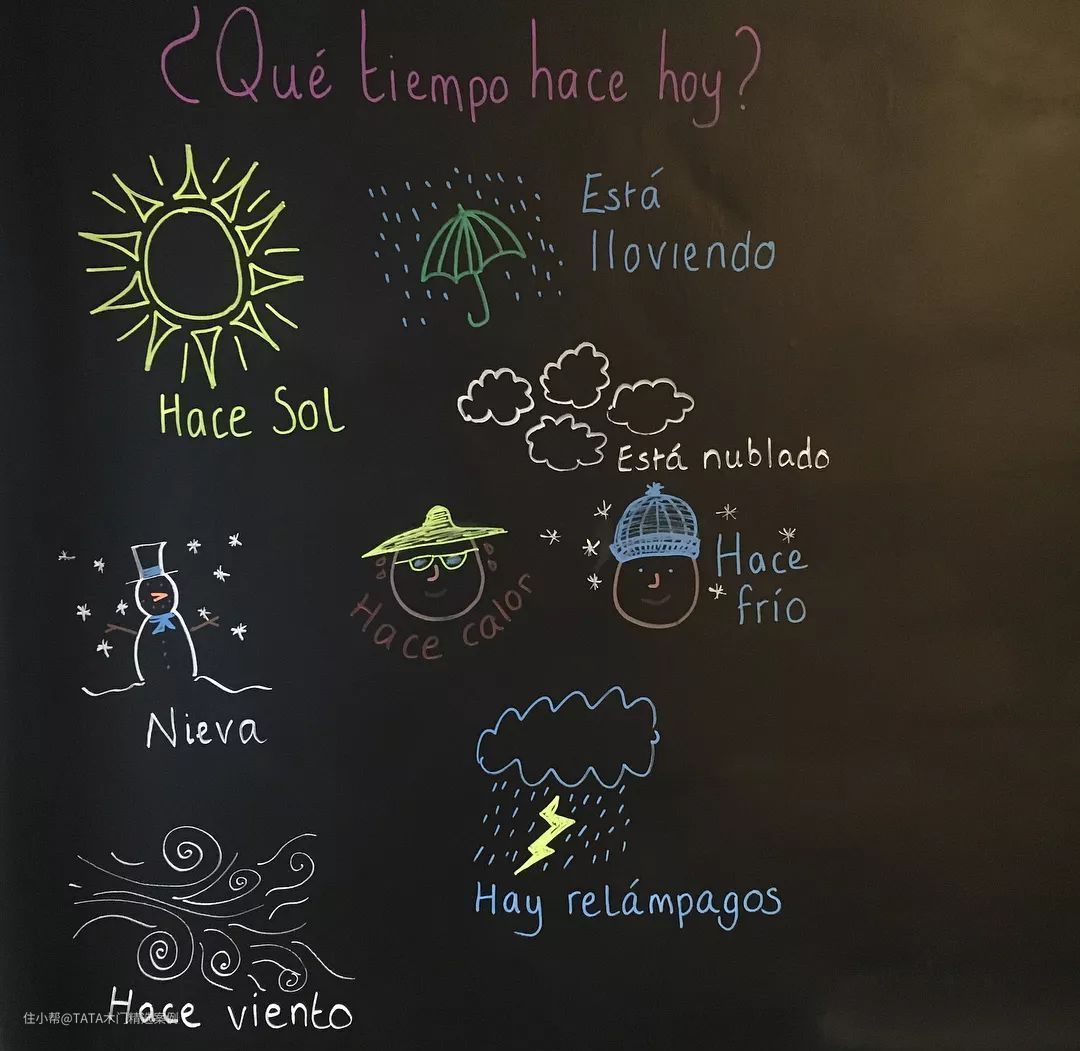 ¿Qué tiempo hace hoy?
Está
lloviendo
Hace Sol
Está nublado
Hace calor
Hace
frío
Nieva
Hay relámpagos
Hace viento
住小帮@TATA木门精选案例